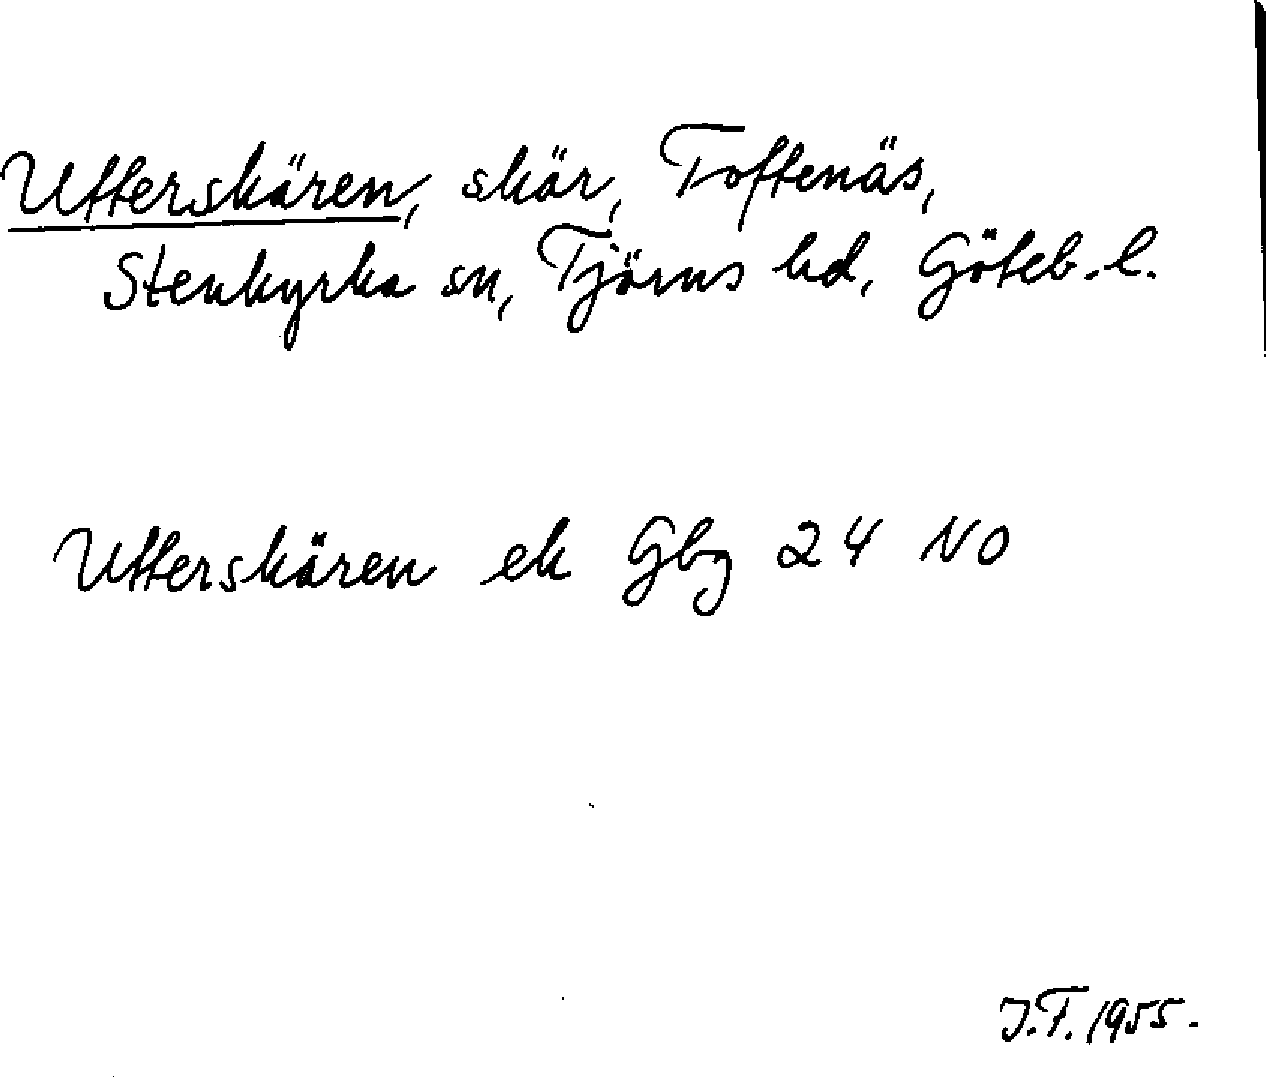 Utterskären, skär, Toftenäs,
Stenkyrka sn, Tjörns hd, Göteb. l.
Utterskären ek Gbg 24 NO
J.F. 1955.